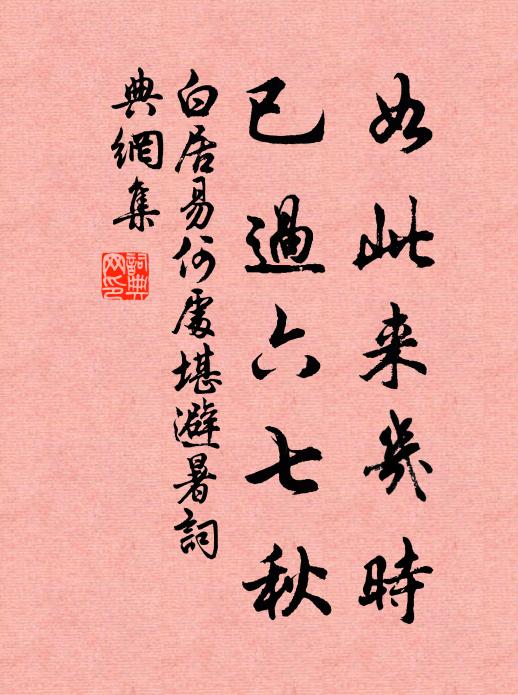 如此来幾時
已過六七秋
白居易何處堪避暑詞
典網集
詞典
网印